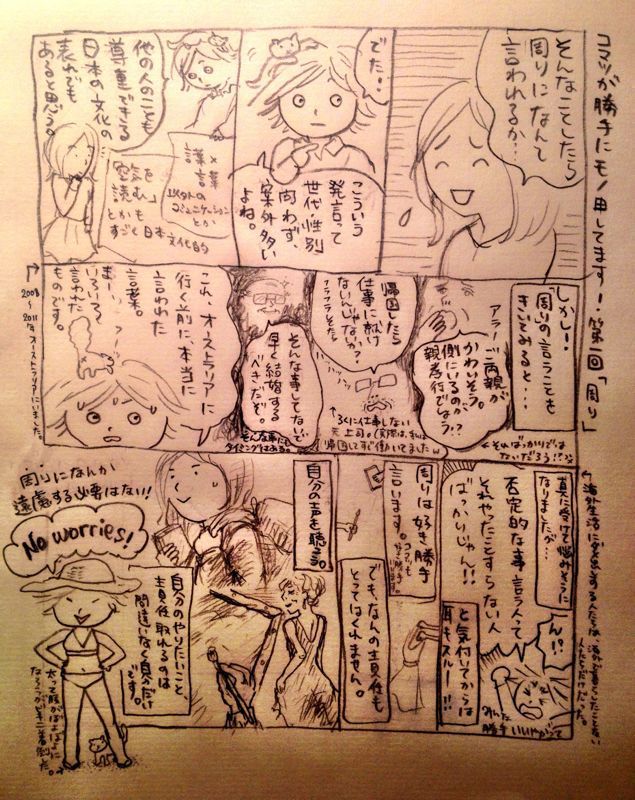 コマツが勝手にモノ申してます！第一回「周り」
そんなことしたら
周りになんて
言われるか…
でた。。
こういう
発言って
世代・性別
問わず、
案外多い
よね。
他の人のことも
尊重できる
日本の文化の
表れでも
あると思う。
謙×美
言葉
以外の
コミュニケーション
とか
「空気を
読む」
とかも
すごく日本文化的
しかし！
「周りの言うことも
きいてみると・・
アラー、ご両親が
かわいそう。
側にいるのが
親孝行でしょう？
←そればっかりでは
ないだろう！？
帰国したら
仕事に就け
ないんじゃないか？
←ろくに仕事しない
元上司。(実際は、私は
帰国してすぐ働いてましたw
そんな事してないで
早く結婚する
べきだぞ。
これ、オーストラリアに
行く前に、本当に
言われた
言葉。
まー、
いろいろ
言われた
ものです。
2008～
2011年オーストラリアにいました。
真に受けて悩みそうに
なりましたが…
否定的な事言う人って
それやったことすらない人
ばっかりじゃん！！
ん！？
と気付いてからは
耳をスルー！！
勝手いいやがって
周りは好き勝手
言います。
でも、なんの責任も
とってはくれません。
自分の声を聴こう。
自分のやりたいこと、
責任取れるのは
間違いなく自分だけ
です。
周りになんか
遠慮する必要はない！
No worries!
太って腹がぽよぽよに
なろうがビキニ着倒す。